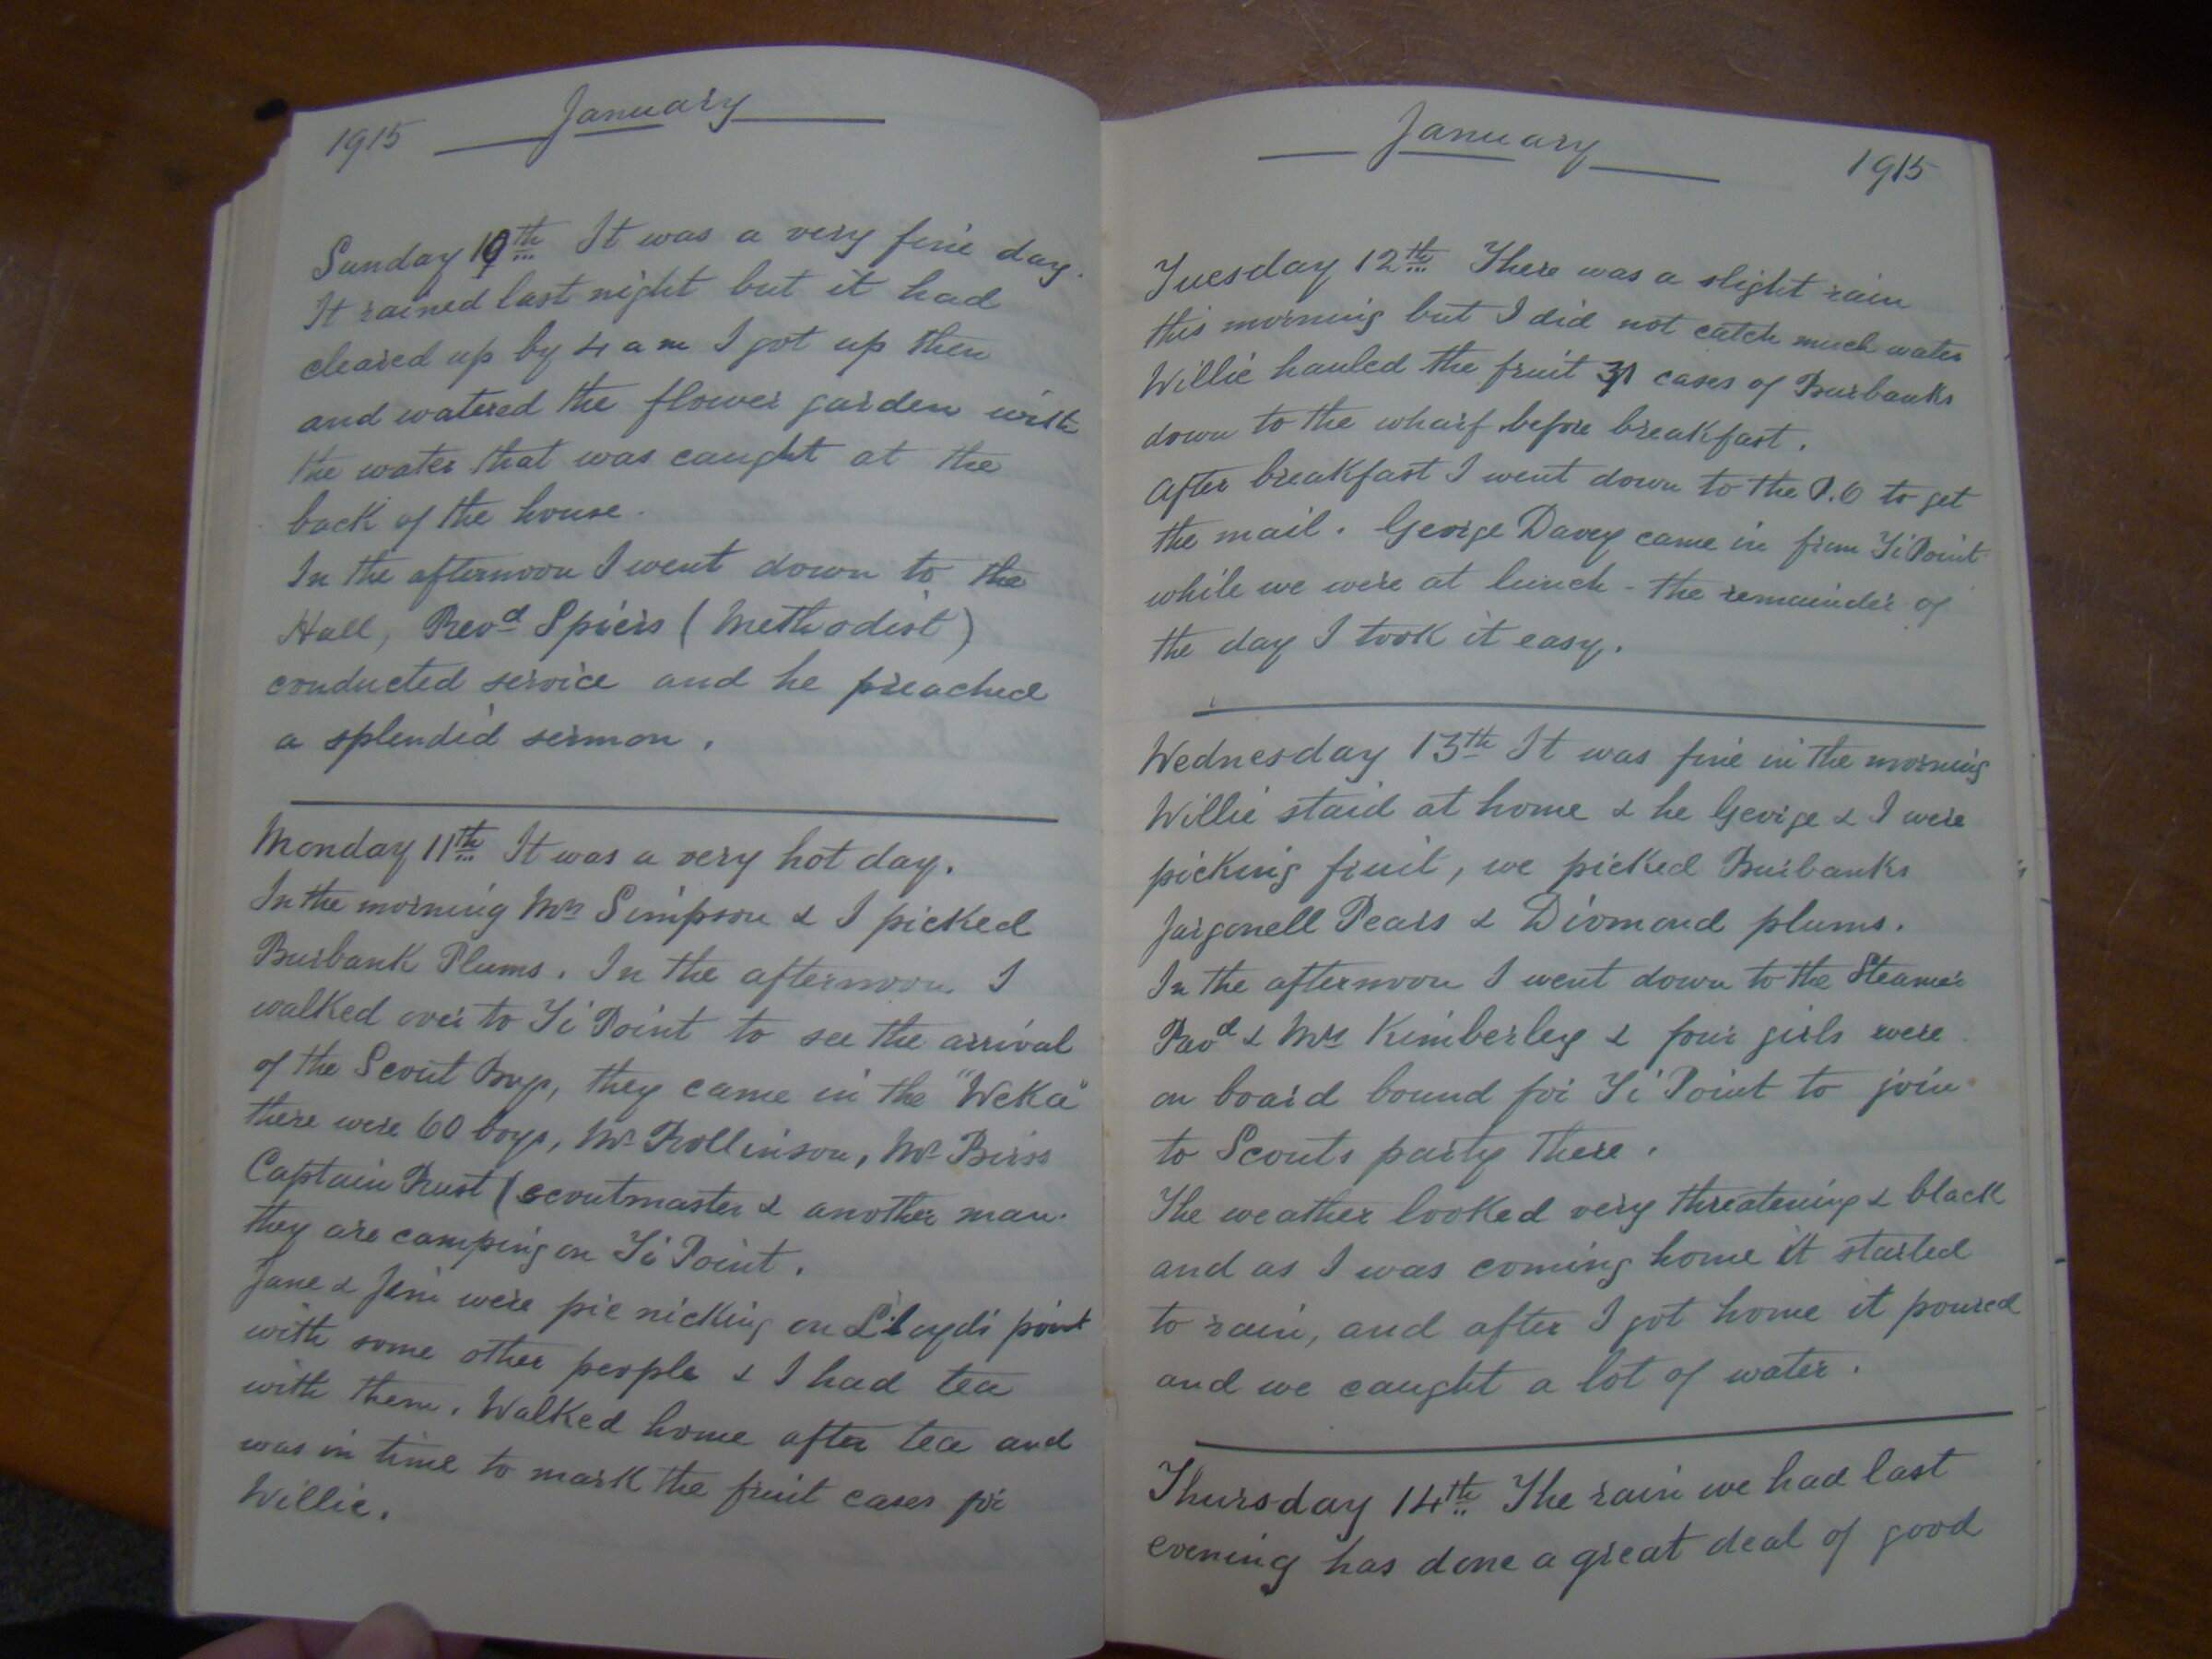 1915 January
Sunday 10th It was a very fine day.
It rained last night but it had
cleared up by 4 am I got up then
and watered the flower garden with
the water that was caught at the
back of the house.
In the afternoon I went down to the
Hall, Revd Spiers (Methodist)
conducted service and he preached
a splendid sermon.
Monday 11th It was a very hot day.
In the morning Mrs Simpson & I picked
Burbank Plums. In the afternoon I
walked over to Ti Point to see the arrival
of the Scout Boys, they came in the "Weka"
there were 60 boys, Mr Rollinson, Mr Birss
Captain Rust (scoutmaster & another man.
they are camping on Ti Point.
Jane & Jem were picnicking on Lloyds point
with some other people & I had tea
with them. Walked home after tea and
was in time to mark the fruit cases for
Willie.
January 1915
Tuesday 12th There was a slight rain
this morning but I did not catch much water
Willie hauled the fruit 31 cases of Burbanks
down to the wharf before breakfast.
After breakfast I went down to the P.O to get
the mail. George Davey came in from Ti Point
while we were at lunch - the remainder of
the day I took it easy.
Wednesday 13th It was fine in the morning
Willie staid at home & he George & I were
picking fruit, we picked Burbanks
Jargonell Pears & Diomond plums.
In the afternoon I went down to the Steamer
Revd & Mrs Kimberley & four girls were
on board bound for Ti Point to join
to Scouts party there.
The weather looked very threatening & black
and as I was coming home it started
to rain, and after I got home it poured
and we caught a lot of water.
Thursday 14th The rain we had last
evening has done a great deal of good